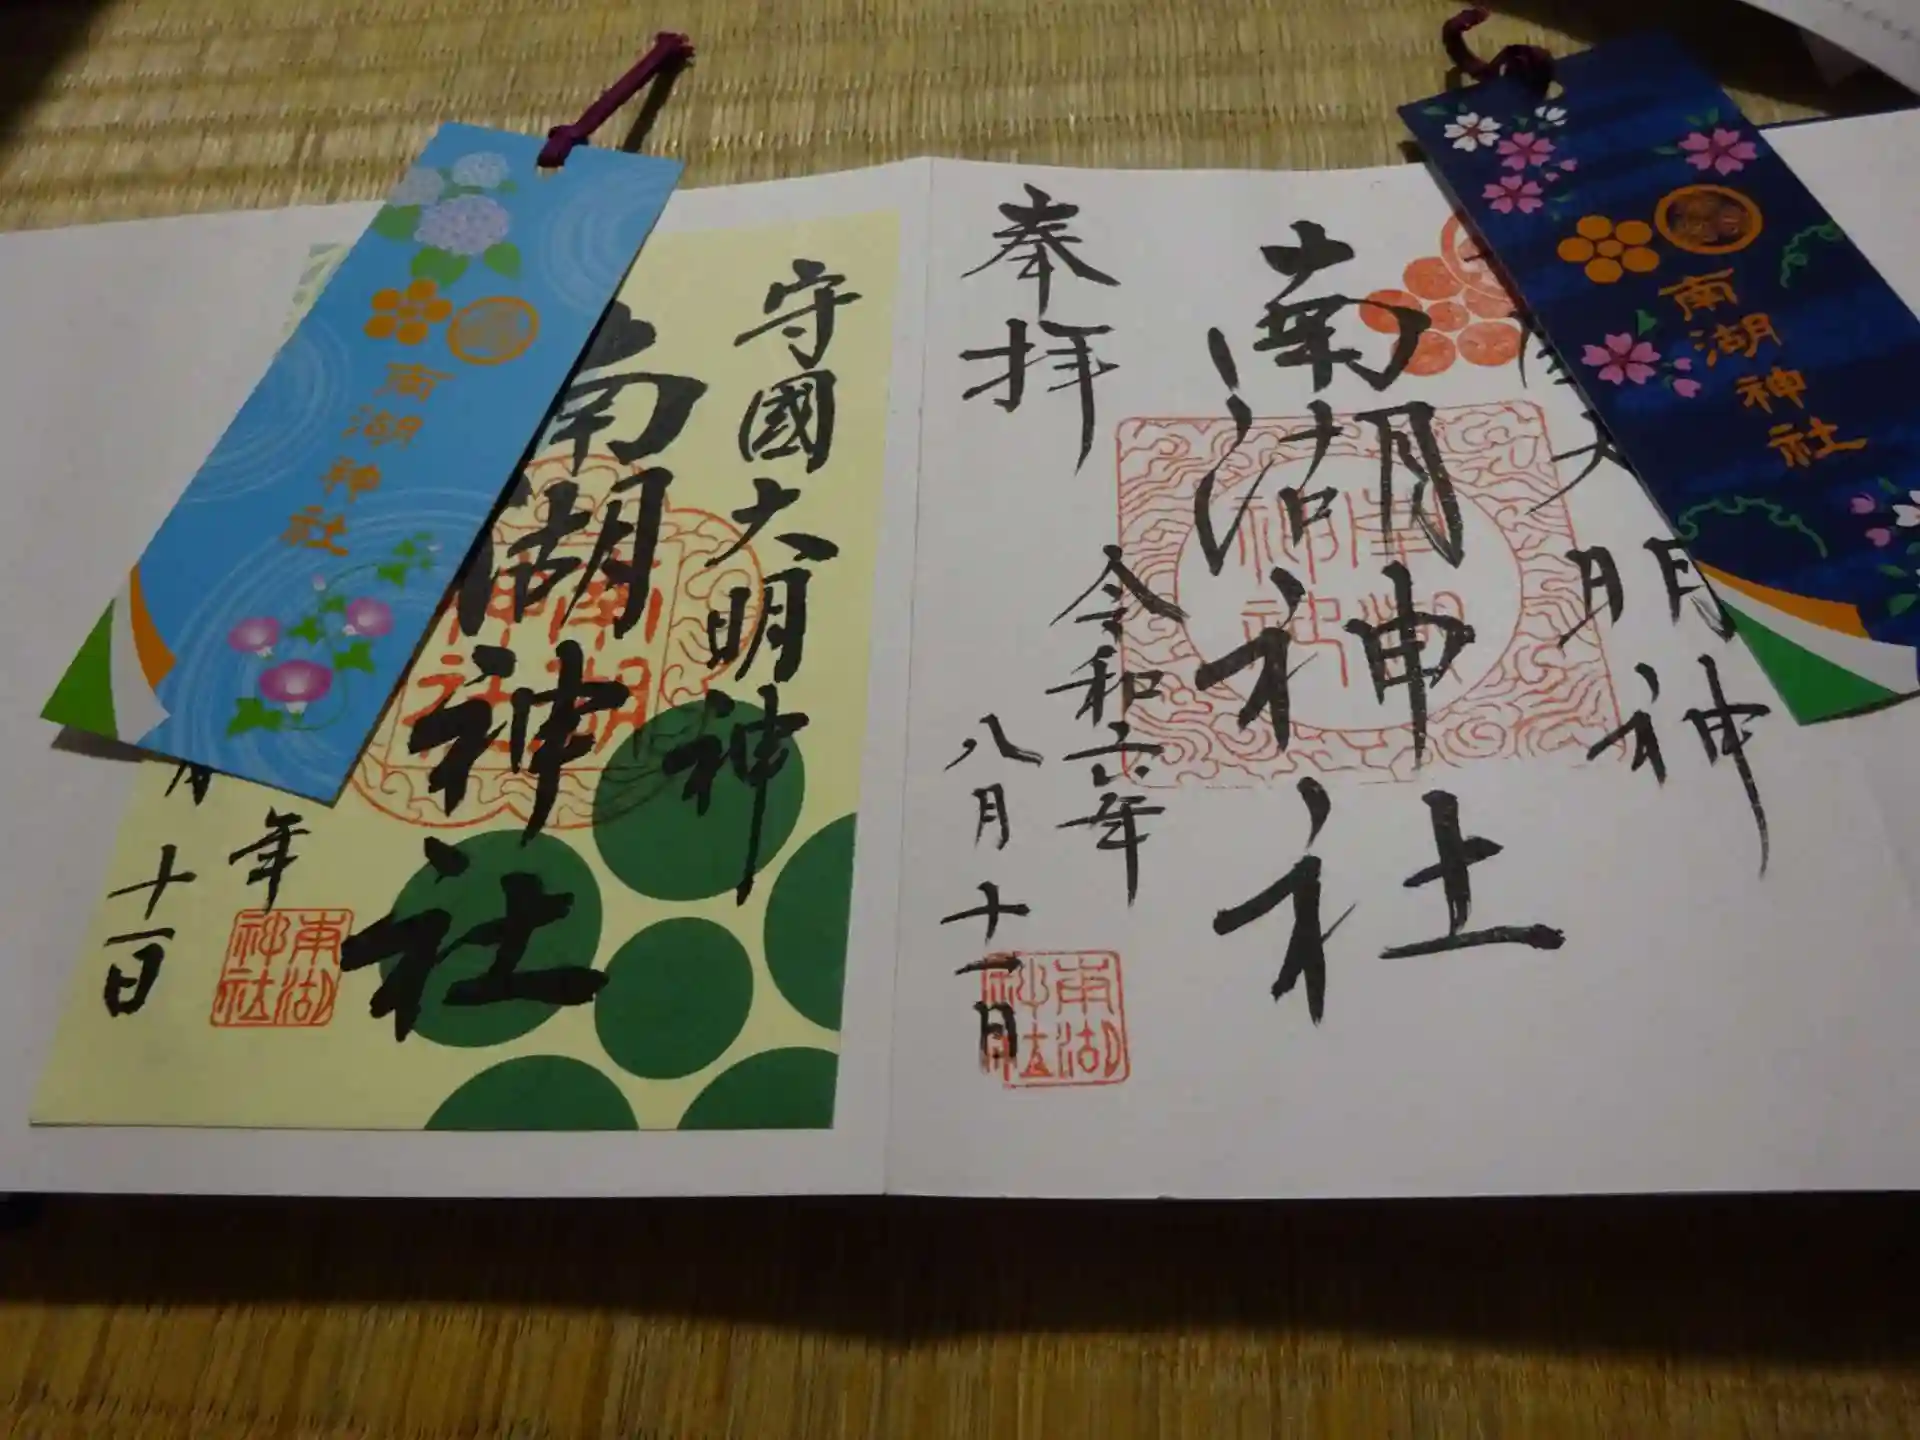 奉拝
南湖神社
大明神
令和六年
八月十一日
南湖神社
南湖神社
南湖神社
守國大明神
南湖神社
年
月十一日
南湖神社
南湖神社
南湖神社